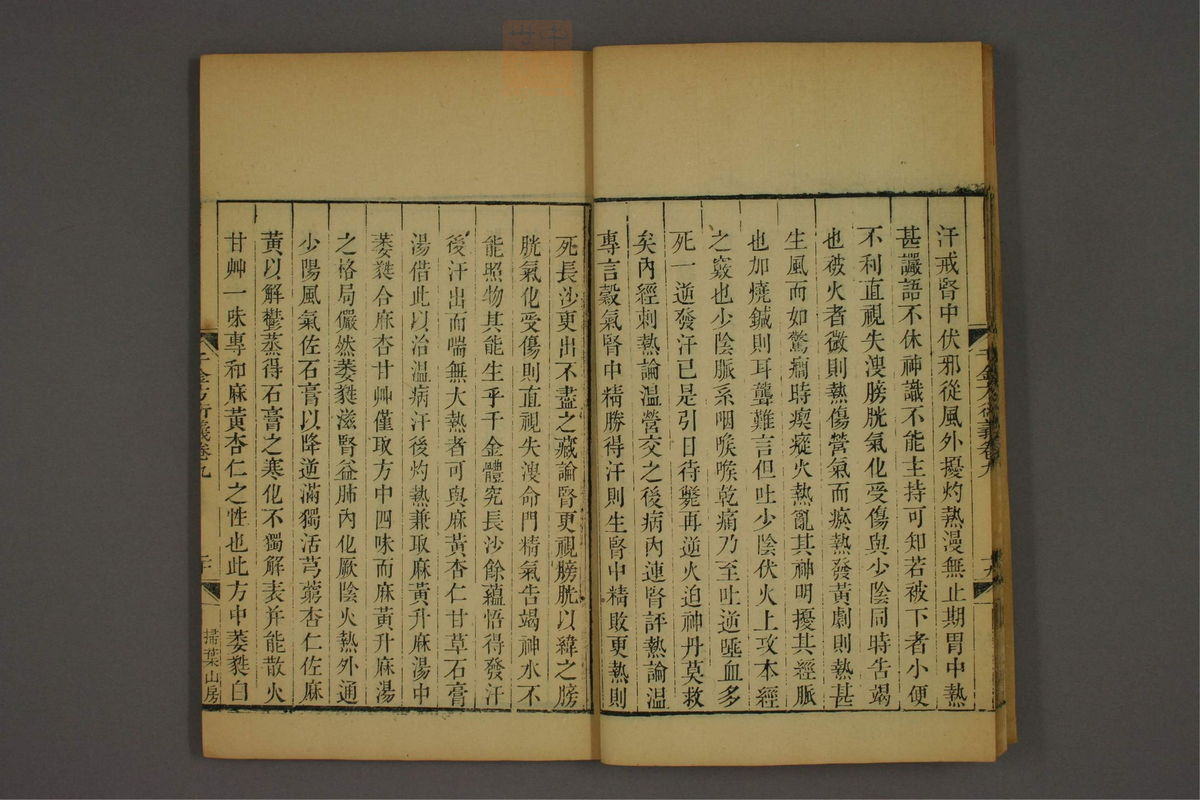 汗戒腎中伏邪從風外擾灼熱漫無止期胃中熱
甚讝語不休神識不能主持可知若被下者小便
不利直視失溲膀胱氣化受傷與少陰同時告竭
也被火者微則熱傷營氣而瘀熱發黃劇則熱甚
生風而如驚癎時瘈瘲火熱亂其神明擾其經脈
也加燒鍼則耳聾難言但吐少陰伏火上攻本經
之竅也少陰脈系咽喉喉乾痛乃至吐逆唾血多
死一逆發汗已是引日待斃再逆火迫神丹莫救
矣內經刺熱論溫營交之後病內連腎評熱論溫
專言穀氣腎中精勝得汗則生腎中精敗更熱則
千金方衍義卷九
十九
死長沙更出不盡之藏論腎更視膀胱以緯之膀
胱氣化受傷則直視失溲命門精氣告竭神水不
能照物其能生乎千金體究長沙餘蘊悟得發汗
後汗出而喘無大熱者可與麻黃杏仁甘草石膏
湯借此以治溫病汗後灼熱兼取麻黃升麻湯中
萎蕤合麻杏甘艸僅取方中四味而麻黃升麻湯
之格局儼然萎蕤滋腎益肺內化厥陰火熱外通
少陽風氣佐石膏以降逆滿獨活芎藭杏仁佐麻
黃以解鬱蒸得石膏之寒化不獨解表并能散火
甘艸一味專和麻黃杏仁之性也此方中萎蕤白
千金方衍義卷九
二十
掃葉山房